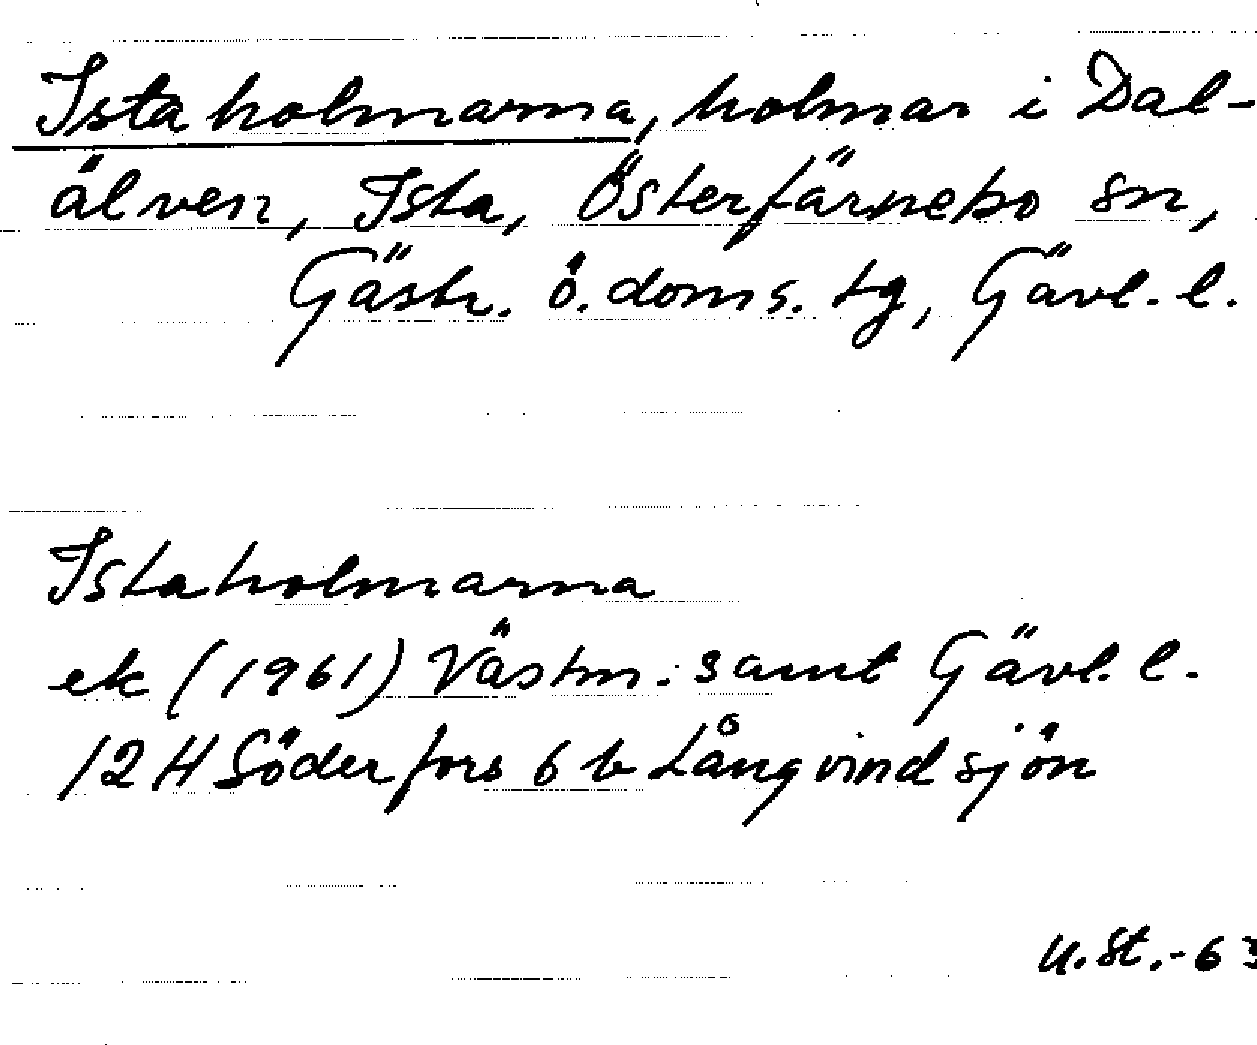 Istaholmarna, holmar i Dal-
älven, Ista, Österfärnebo sn,
Gästr. ö. doms. tg, Gävl. l.
Istaholmarna
ek (1961) Västm. samt Gävl. l.
12 H Söderfors 6 b Långvindsjön
U. St. -63